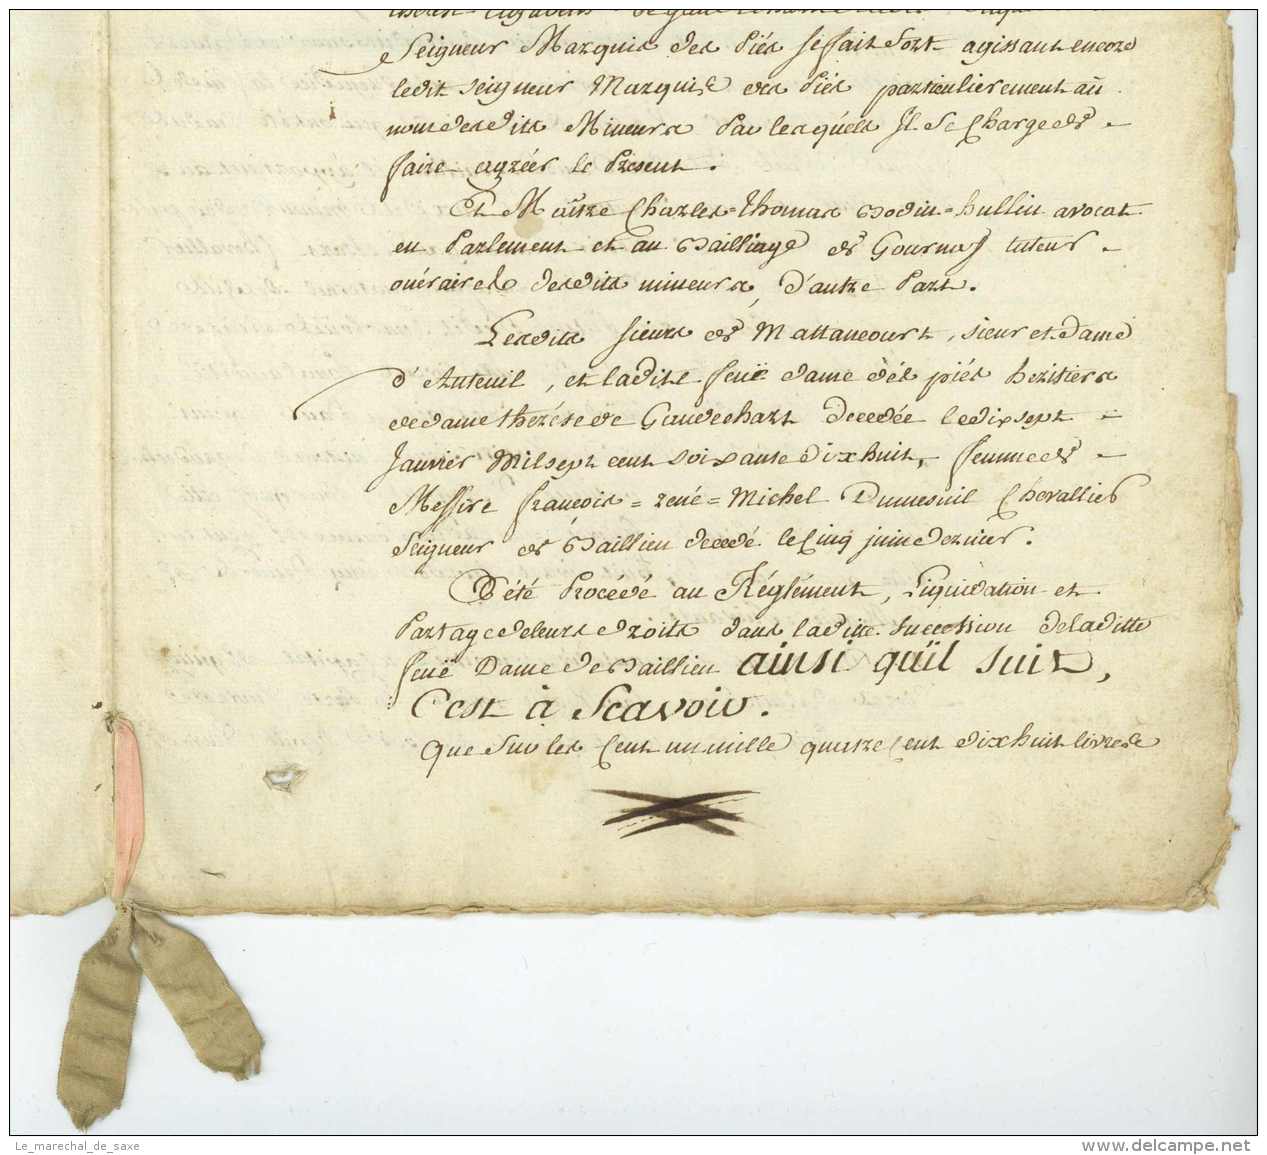 Seigneur Marquis des piés se fait fort agissant encore
ledit seigneur Marquis des piés particulierement au
nom desdits Mineurs par lesquels Il Se Charge de
faire agréer le Present.
Et Maitre Charles = thomas Bodin = hullin avocat
en Parlement et au Bailliage de Gournay tuteur
onéraire desdits mineurs, d'autre Part.
Lesdits sieurs de Mattancourt, sieur et dame
d'Auteuil, et ladite feuë dame dés piés heritiers
de dame thérése de Gaudechart decedée le dix sept
Janvier Mil sept cent soixante dix huit, femme de
Messire françois = rené = Michel Dumesnil Chevallier
Seigneur de Baillieu decedé le Cinq juin dernier.
D'été Procédé au Réglement, Liquidation et
Partage de leurs droits dans ladite succession de laditte
feuë Dame de Baillieu ainsi quïl suit,
C'est à Scavoir.
Que Sur les Cent un mille quatre Cent dix huit livres de
Le_marechal_de_saxe
delcampe.net